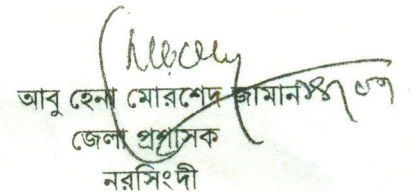 আবু হেনা মোরশেদ জামান
জেলা প্রশাসক
নরসিংদী